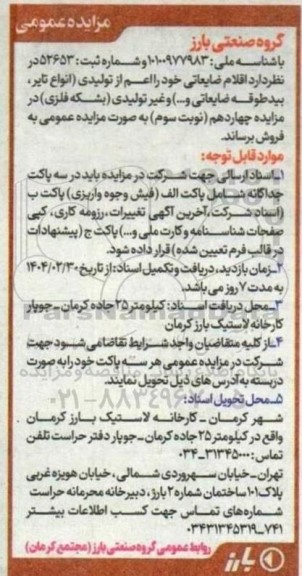 مزایده عمومی
گروه صنعتی بارز
با شناسه ملی: ۱۰۱۰۰۹۷۷۹۸۳ و شماره ثبت: ۵۲۶۵۳ در
نظر دارد اقلام ضایعاتی خود را اعم از تولیدی (انواع تایر،
بید طوقه ضایعاتی و...) و غیر تولیدی (بشکه فلزی) در
مزایده چهاردهم (نوبت سوم) به صورت مزایده عمومی به
فروش برساند.
موارد قابل توجه:
۱ـ اسناد ارسالی جهت شرکت در مزایده باید در سه پاکت
جداگانه شامل پاکت الف (فیش وجوه واریزی) پاکت ب
(اسناد شرکت، آخرین آگهی تغییرات، رزومه کاری، کپی
صفحات شناسنامه و کارت ملی و...) پاکت ج (پیشنهادات
در قالب فرم تعیین شده) قرار داده شود.
۲ـ زمان بازدید، دریافت و تکمیل اسناد: از تاریخ ۱۴۰۴/۰۲/۳۰
به مدت ۷ روز می باشد.
۳ـ محل دریافت اسناد: کیلومتر ۲۵ جاده کرمان ـ جوپار
کارخانه لاستیک بارز کرمان
۴ـ از کلیه متقاضیان واجد شرایط تقاضا می شود جهت
شرکت در مزایده عمومی هر سه پاکت خود را به صورت
دربسته به آدرس های ذیل تحویل نمایند.
۵ـ محل تحویل اسناد:
شهر کرمان ـ کارخانه لاستیک بارز کرمان
واقع در کیلومتر ۲۵ جاده کرمان ـ جوپار دفتر حراست تلفن
تماس: ۳۱۳۴۵۰۰۰-۰۳۴
تهران ـ خیابان سهروردی شمالی، خیابان هویزه غربی
پلاک ۱۰۱ ساختمان شماره ۲ بارز، دبیرخانه محرمانه حراست
شماره های تماس جهت کسب اطلاعات بیشتر
۷۴۱-۰۳۴۳۱۳۴۵۳۱۹
روابط عمومی گروه صنعتی بارز (مجتمع کرمان)
بارز